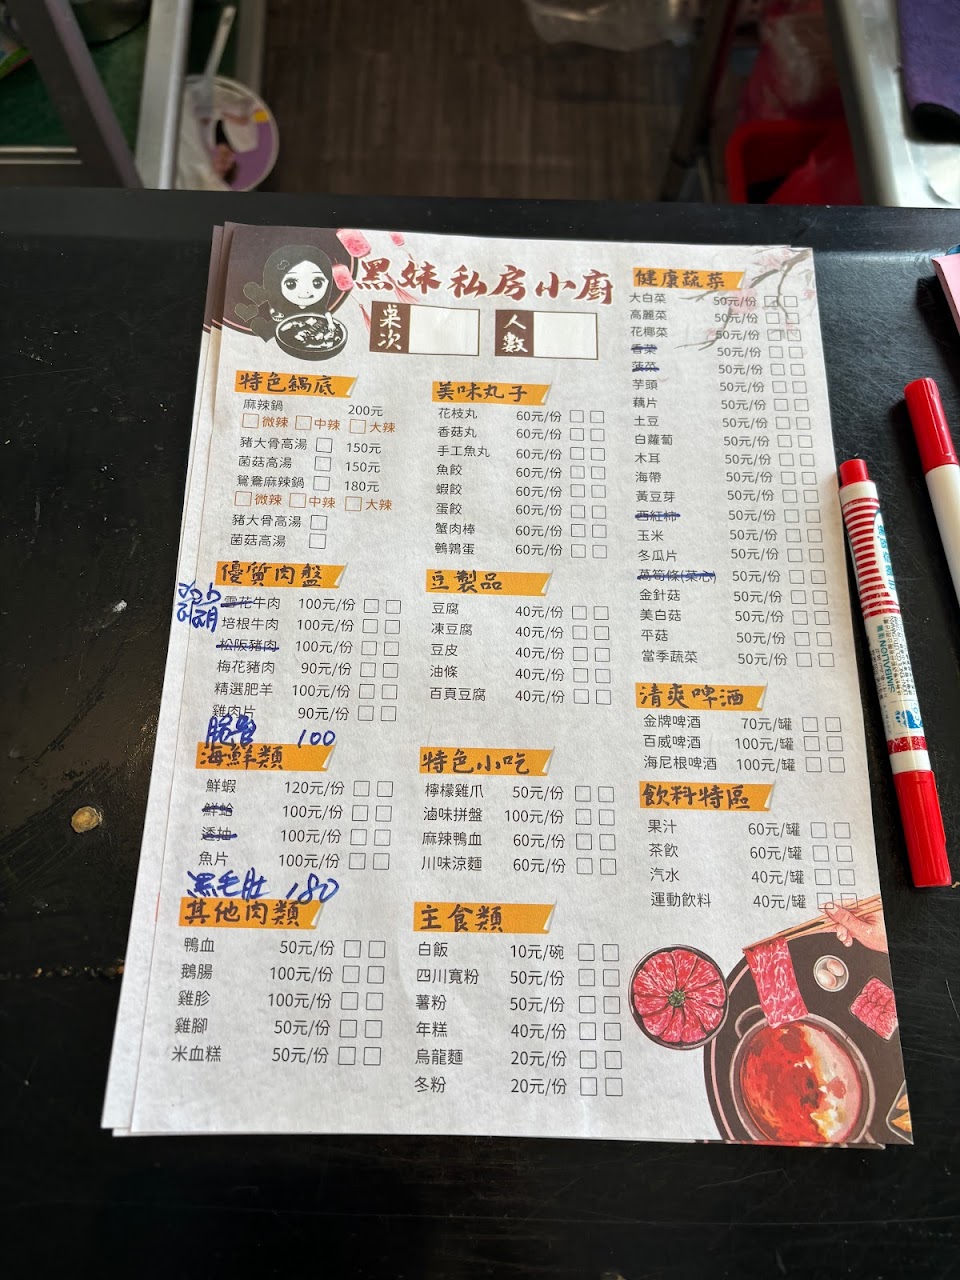 黑妹私房小廚
桌次
人數
特色鍋底
麻辣鍋 200元
微辣 中辣 大辣
豬大骨高湯 150元
菌菇高湯 150元
鴛鴦麻辣鍋 180元
微辣 中辣 大辣
豬大骨高湯
菌菇高湯
優質肉盤
雪花牛肉 100元/份
培根牛肉 100元/份
松阪豬肉 100元/份
梅花豬肉 90元/份
精選肥羊 100元/份
雞肉片 90元/份
100
海鮮類
鮮蝦 120元/份
鮮蛤 100元/份
透抽 100元/份
魚片 100元/份
黑毛肚 180
其他肉類
鴨血 50元/份
鵝腸 100元/份
雞胗 100元/份
雞腳 50元/份
米血糕 50元/份
美味丸子
花枝丸 60元/份
香菇丸 60元/份
手工魚丸 60元/份
魚餃 60元/份
蝦餃 60元/份
蛋餃 60元/份
蟹肉棒 60元/份
鵪鶉蛋 60元/份
豆製品
豆腐 40元/份
凍豆腐 40元/份
豆皮 40元/份
油條 40元/份
百頁豆腐 40元/份
特色小吃
檸檬雞爪 50元/份
滷味拼盤 100元/份
麻辣鴨血 60元/份
川味涼麵 60元/份
主食類
白飯 10元/碗
四川寬粉 50元/份
薯粉 50元/份
年糕 40元/份
烏龍麵 20元/份
冬粉 20元/份
健康蔬菜
大白菜 50元/份
高麗菜 50元/份
花椰菜 50元/份
香菜 50元/份
菠菜 50元/份
芋頭 50元/份
藕片 50元/份
土豆 50元/份
白蘿蔔 50元/份
木耳 50元/份
海帶 50元/份
黃豆芽 50元/份
西紅柿 50元/份
玉米 50元/份
冬瓜片 50元/份
萵筍條(菜心) 50元/份
金針菇 50元/份
美白菇 50元/份
平菇 50元/份
當季蔬菜 50元/份
清爽啤酒
金牌啤酒 70元/罐
百威啤酒 100元/罐
海尼根啤酒 100元/罐
飲料特區
果汁 60元/罐
茶飲 60元/罐
汽水 40元/罐
運動飲料 40元/罐